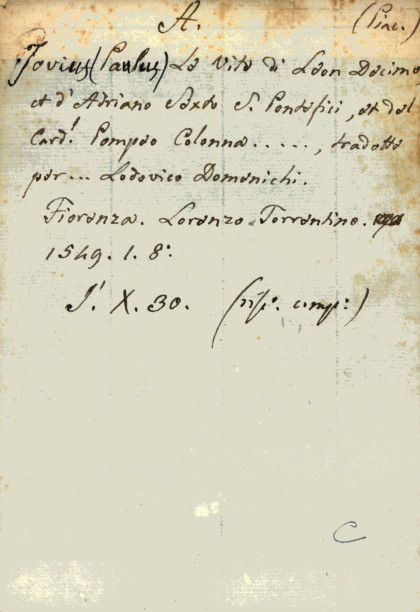 A. (Piac.)
Jovius (Paulus) Le Vite di Leon Decimo
et d'Adriano Sexto S. Pontefici, et del
Card.l Pompeo Colonna....., tradotte
per... Lodovico Domenichi.
Fiorenza. Lorenzo Torrentino.
1549. 1. 8º.
J.' X. 30. (risp. comp:)
C